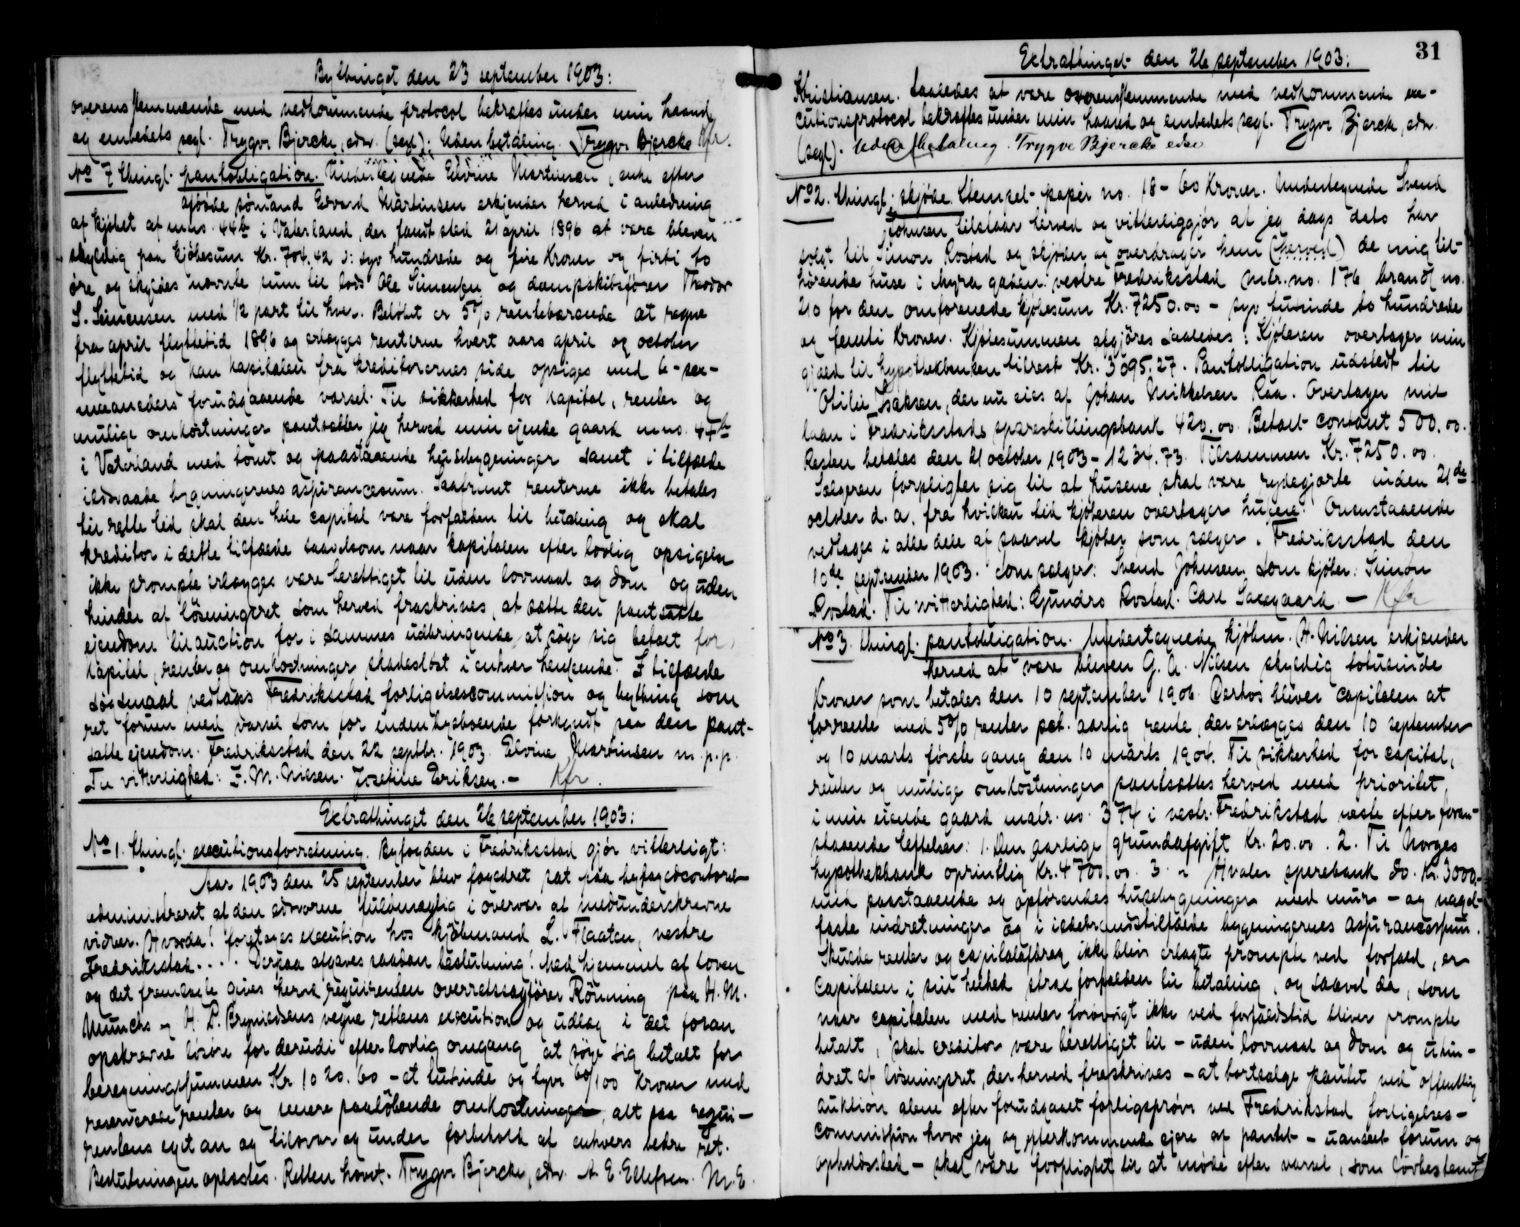 Bythinget den 23 september 1903:
overensstemmende med vedkommende protocol bekræftes under min haand
og embedets segl. Trygve Bjercke, edsv. (segl). Uden betaling. Trygve Bjercke Kfr.
No 7 Thingl. pantobligation. Undertegnede Elvine Martinsen, enke efter
afdøde sømand Edvard Martinsen erkjender herved i anledning
af kjøbet af mno. 44b i Vaterland, der fandt sted 21 april 1896 at være bleven
skyldig paa kjøbesum Kr. 704.42 ɔ: syv hundrede og fire Kroner og firti to
øre og skyldes nævnte sum til lods Ole Simensen og dampskibsfører Theodor
S. Simensen med 1/2 part til hver. Beløbet er 5% rentebærende at regne
fra april flyttetid 1896 og erlægges renterne hvert aars april og october
flyttetid og kan kapitalen fra kreditorernes side opsiges med 6 - sex -
maaneders forudgaaende varsel. Til sikkerhed for kapital, renter og
mulige omkostninger pantsætter jeg herved min eiende gaard mno. 44b
i Vaterland med tomt og paastaaende husbygninger samt i tilfælde
ildsvaade bygningernes assurancesum. Saafremt renterne ikke betales
til rette tid skal den hele capital være forfalden til betaling og skal
kreditor i dette tilfælde saavelsom naar kapitalen efter lovlig opsigelse
ikke prompte erlægges være berettiget til uden lovmaal og dom og uden
hinder af løsningsret som herved fraskrives, at sætte den pantsatte
eiendom til auction for i sammes udbringende at søge sig betalt for
kapital, renter og omkostninger skadesløst i enhver henseende. I tilfælde
søgsmaal vedtages Fredriksstad forligelsescommission og bything som
ret forum med varsel som for indenbysboende forkyndt paa den pant-
satte eiendom. Fredriksstad den 22 septbr. 1903. Elvine Martinsen m.p.p.
Til vitterlighed: I. M. Nilsen. Josefine Eriksen. - Kfr.
Extrathinget den 26 september 1903:
No 1. Thingl. executionsforretning. Byfogden i Fredriksstad gjør vitterligt:
Aar 1903 den 25 september blev fogedret sat paa byfogedcontoret
administreret af den edsvorne fuldmægtig i overvær af medunderskrevne
vidner. Hvorda! foretoges execution hos kjøbmand L. Flaaten, vestre
Fredriksstad.... Derpaa afgaves saadan beslutning: Med hjemmel af loven
og det fremlagte gives herved requirenten overretssagfører Rönning paa H. M.
Munchs og H. P. Brynildsens vegne rettens execution og udlæg i det foran
opskrevne løsøre for derudi efter lovlig omgang at søge sig betalt for
beregningssummen Kr. 1020.60 - et tusinde og tyve 60/100 Kroner med
reserverede renter og senere paaløbende omkostninger, alt paa requi-
rentens eget an og tilsvar og under forbehold af enhvers bedre ret.
Beslutningen oplæstes. Retten hævet. Trygve Bjercke, edsv. A. E. Ellefsen. M. E.
Extrathinget den 26 september 1903:
31
Kristiansen. Saaledes at være overensstemmende med vedkommende exe-
cutionsprotocol bekræftes under min haand og embedets segl. Trygve Bjercke, edsv.
(segl). Uden betaling. Trygve Bjercke edsv
No 2. Thingl. skjøde. Stempel-papir no. 18 - 60 Kroner. Undertegnede Svend
Johnsen tilstaar herved og vitterliggjør at jeg dags dato har
solgt til Simon Rostad og skjøder og overdrager ham (herved) de mig til-
hørende huse i Myra gaden vestre Fredriksstad matr.no. 176 brandf no.
210 for den omforenede kjøbesum Kr. 7250.00 - syv tusinde to hundrede
og femti Kroner. Kjøbesummen afgjøres saaledes: Kjøberen overtager min
gjæld til hypothekbanken tilrest Kr. 5095.27. Pantobligation udstedt til
Otilie Isaksen, der nu eies af Johan Mikkelsen Raa. Overtager mit
laan i Fredriksstads spareskillingsbank 420.00. Betalt contant 500.00.
Resten betales den 21 october 1903 - 1234.73. Tilsammen Kr. 7250.00.
Sælgeren forpligter sig til at husene skal være rydegjorte inden 21de
october d.a. fra hvilken tid kjøberen overtager husene. Ovenstaaende
vedtages i alle dele af saavel kjøber som sælger. Fredriksstad den
10de september 1903. Som sælger: Svend Johnsen. Som kjøber: Simon
Rostad. Til vitterlighed: Gundro Rostad. Carl Saxegaard. - Kfr
No 3. Thingl. pantobligation. Undertegnede kjøbm. H. Nilsen erkjender
herved at være bleven G. A. Nilsen skyldig totusinde
Kroner som betales den 10 september 1906. Derhos bliver capitalen at
forrente med 5% renter pct. aarlig rente, der erlægges den 10 september
og 10 marts første gang den 10 marts 1904. Til sikkerhed for capital,
renter og mulige omkostninger pantsættes herved med prioritet
i min eiende gaard matr. no. 374 i vestr. Fredrikstad næste efter foran-
staaende heftelser: 1. Den aarlige grundafgift Kr. 20.00. 2. Til Norges
hypothekbank oprintlig Kr. 4700.00. 3. " Hvaler sparebank do. Kr. 3000.-
med paastaaende og opførendes husebygninger med mur - og nagel-
faste indretninger og i ildebrandstilfælde bygningernes assurancesum.
Skulde renter og capitalafdrag ikke blive erlagte prompte ved forfald, er
capitalen i sin helhed straks forfalden til betaling, og saavel da, som
naar capitalen med renter forøvrigt ikke ved forfaldstid bliver prompte
betalt, skal creditor være berettiget til - uden lovmaal og dom og uhin-
dret af løsningsret, der herved fraskrives - at bortsælge pantet ved offentlig
auktion alene efter forudgaaet forligsprøve ved Fredrikstad forligelses-
commission hvor jeg og efterkommende eiere af pantet - uanseet forum og
opholdssted - skal være forpligtet til at møde efter varsel, som lovbestemt